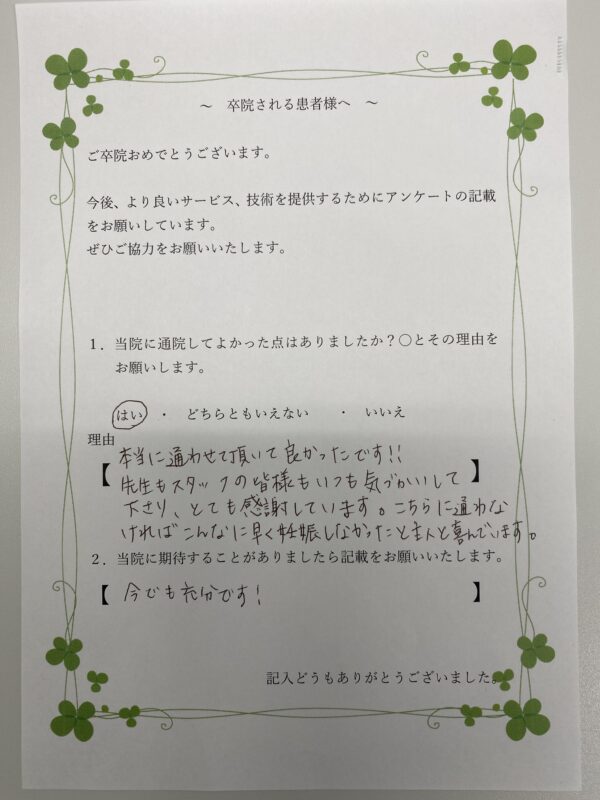 ～　卒院される患者様へ　～
ご卒院おめでとうございます。
今後、より良いサービス、技術を提供するためにアンケートの記載
をお願いしています。
ぜひご協力をお願いいたします。
１．当院に通院してよかった点はありましたか？〇とその理由を
お願いします。
はい　・　どちらともいえない　・　いいえ
理由
【本当に通わせて頂いて良かったです!!
先生もスタッフの皆様もいつも気づかいして】
下さり、とても感謝しています。こちらに通わな
ければこんなに早く妊娠しなかったと主人と喜んでいます。
２．当院に期待することがありましたら記載をお願いいたします。
【今でも充分です!】
記入どうもありがとうございました。